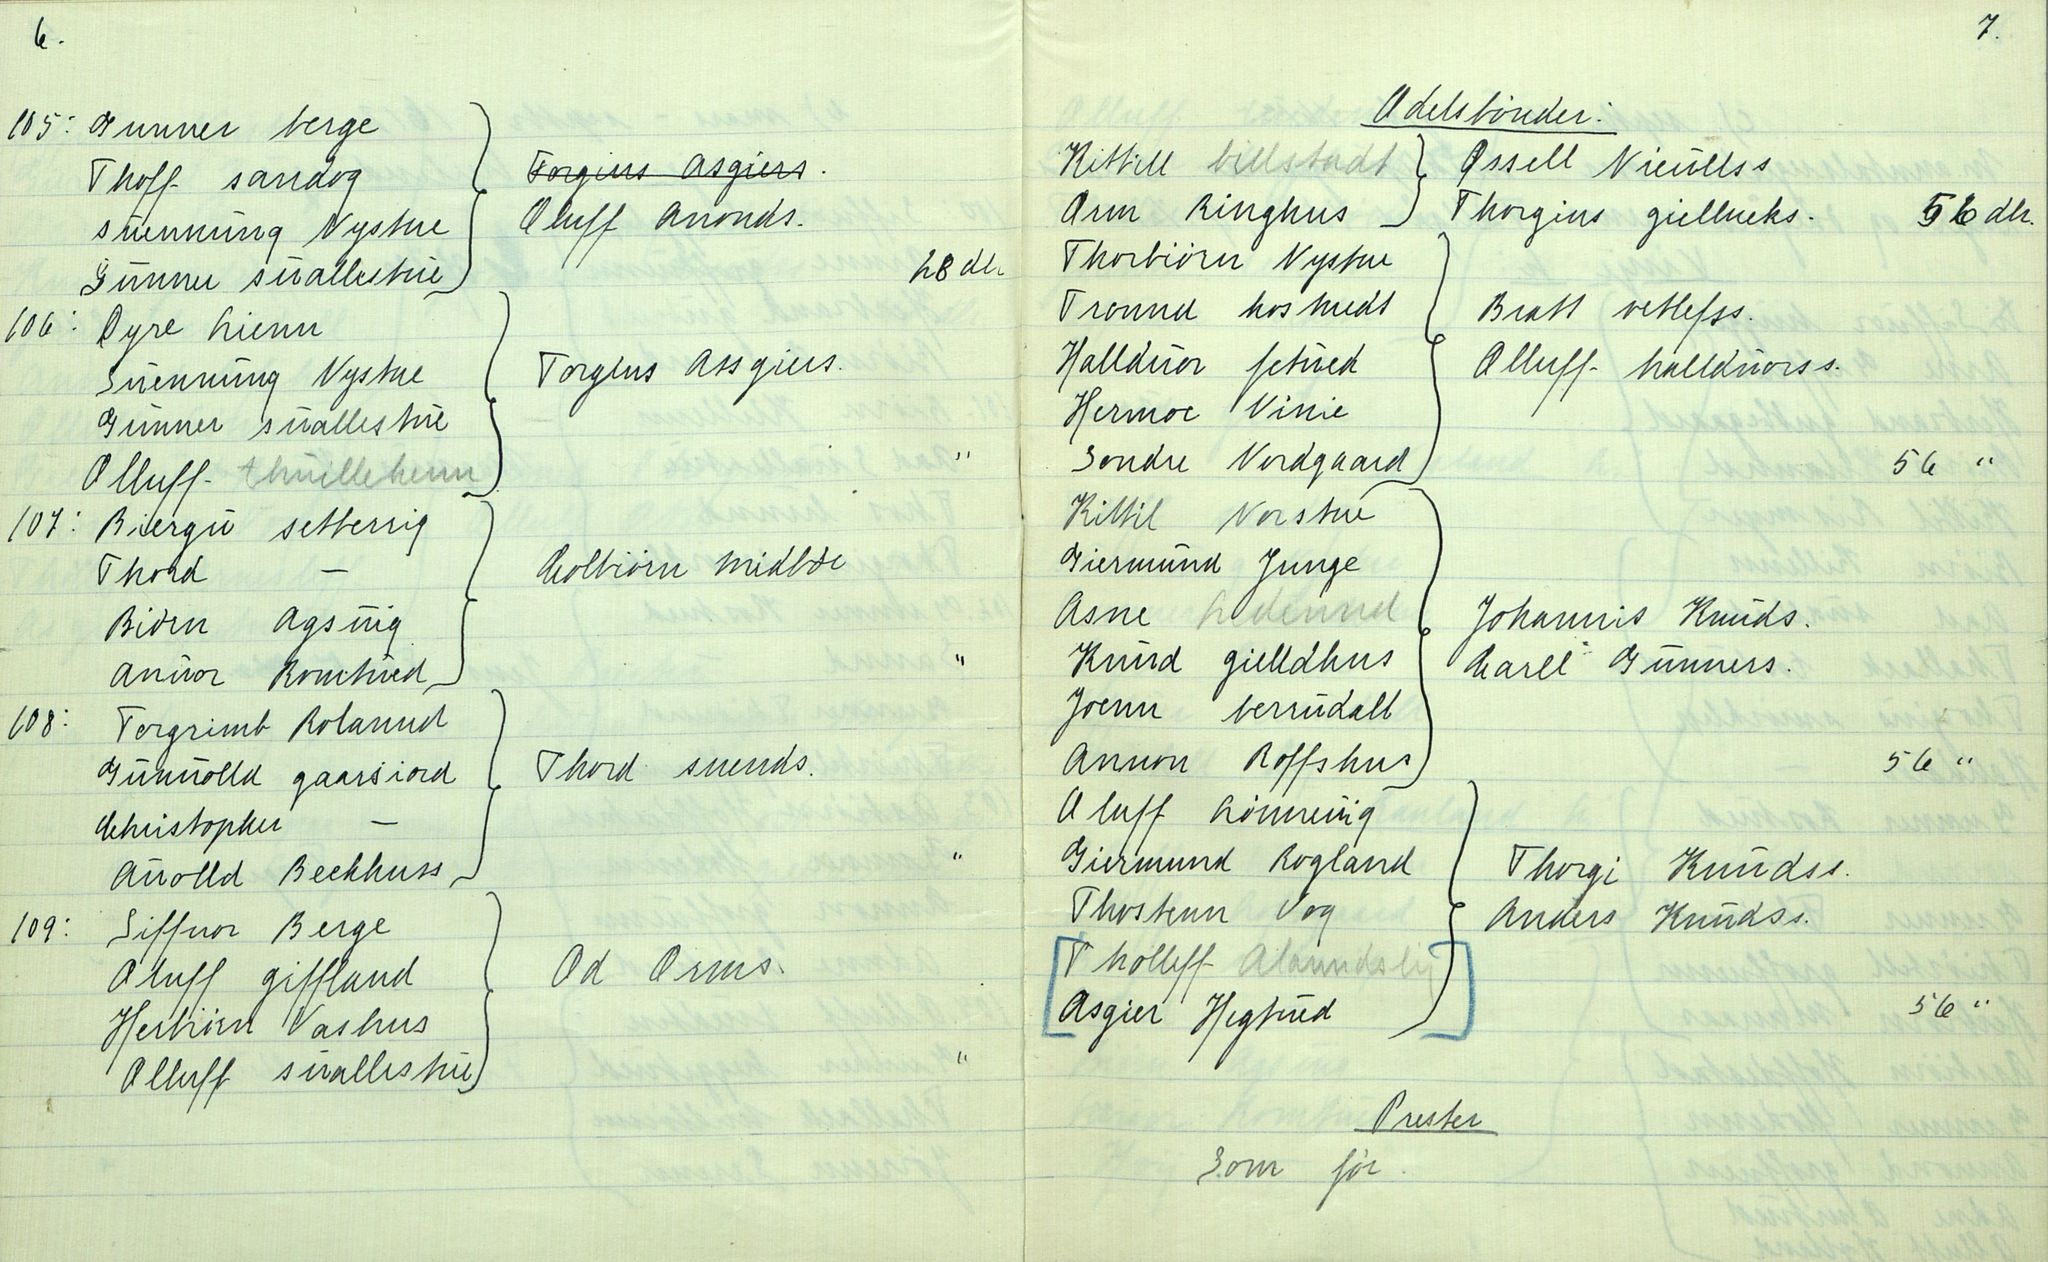 6.
105: Gunner berge
Thoff sandog
Suenning Nystue
Gunner suallestue
Torgius Asgiers.
Oluff Anonds.
28 dlr
106: Dyre Lienn
Suenning Nystue
Gunner suallestue
Olluff
Torgius Assgiers.
"
107: Biergu setberrig
Thord —
Biorn Agsuig
Anuor Romtued
Colbiorn midbøe
"
108: Torgrimb Rolannd
Gunuolld gaarsiord
Christopher —
Auolld Beckhuss
Thord suends.
"
109: Siffuor Berge
Oluff giffland
Herbiorn Vashus
Olluff suallestue
Od Orms.
"
7.
Odelsbönder:
Kittill billstadt
Orm Ringhus
Ossell Nieullss
Thorgius giellueks.
56 dlr.
Thorbiörn Nystue
Tronnd hostuedt
 Halluor setued
Hermoe Vinie
Sondre Nordgaard
Bratt vetlefss.
Olluff halluorss.
56 "
Kittil Norstue
Giermund Junge
Asne
Knud gielldhus
Joenn berrudalt
Annon Roffshus
Johannis Knuds.
Carll Gunners.
56 "
Oluff Lönneuig
Giermund Rogland
Thostenn Vog
Tholleff
Asgier Hegtued
Thorgi Knudss.
Anders Knudss.
56 "
Prester
Som før.